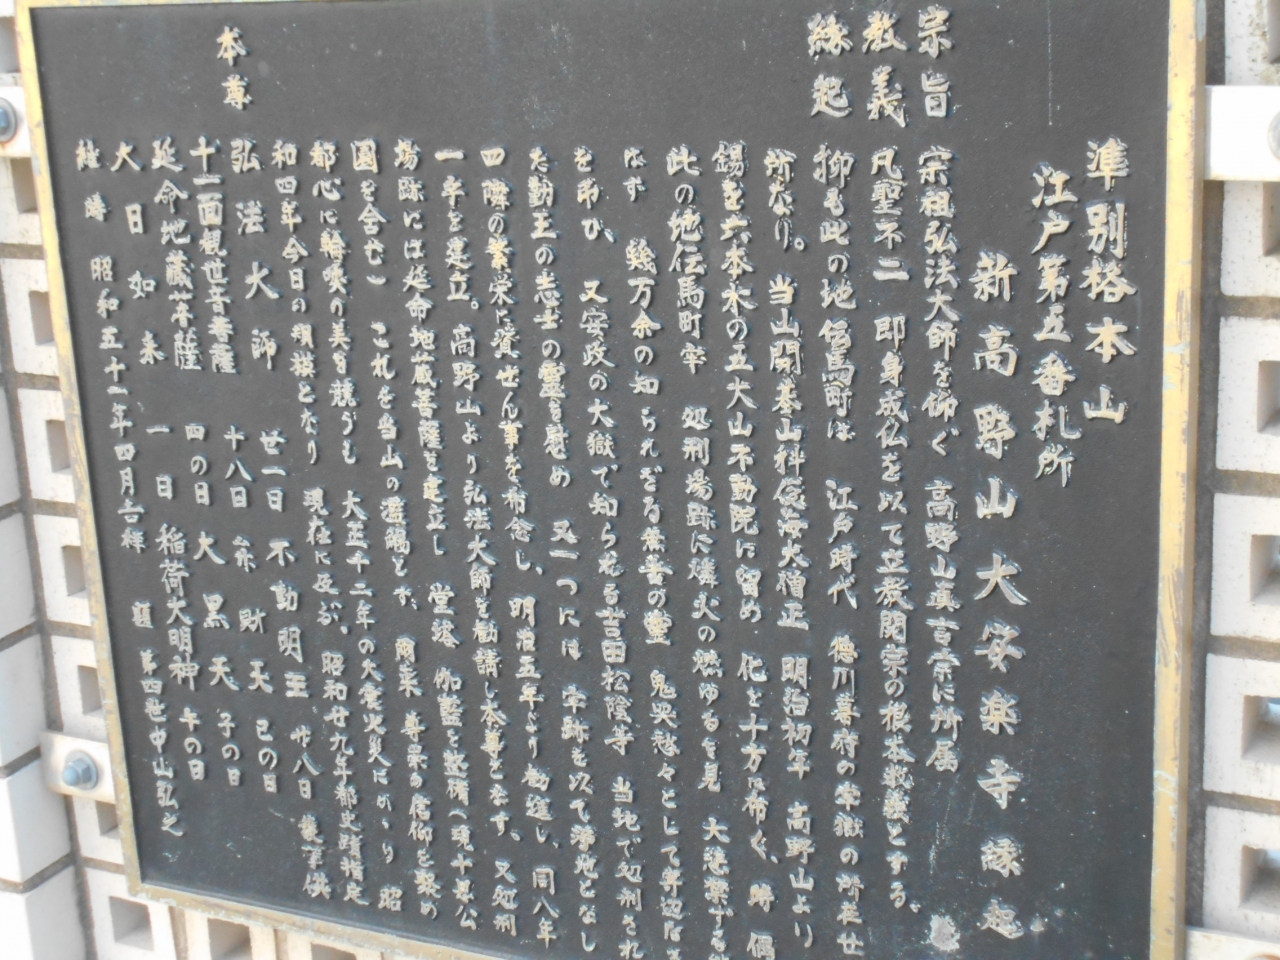 準別格本山
江戸第五番札所
新高野山大安楽寺縁起
宗旨 宗祖弘法大師を仰ぐ 高野山真言宗に所属
教義 凡聖不二 即身成仏を以て立教開宗の根本教義とする。
縁起 抑も此の地伝馬町は 江戸時代 徳川幕府の牢獄の所在せ
所なり。 当山開基山科俊海大僧正 明治初年 高野山より
錫を六本木の五大山不動院に留め 化を十方に布く、時 偶
此の地伝馬町牢 処刑場跡に燐火の燃ゆるを見 大悲禁ずる
はず 幾万余の知られざる無番の霊 鬼哭愁々として
を弔び、 又安政の大獄で知らるる吉田松陰等 当地で処刑され
た勤王の志士の霊を慰め 又一つには 牢跡を以て浄地となし
四隣の繁栄に資せん事を布念し、 明治五年より勧進し、同八年
一宇を建立。 高野山より弘法大師を勧請し本尊となす、 又処刑
場跡には延命地蔵菩薩を建立し 堂塔 伽藍を整備(現十思公
園を含む) これを当山の濫觴とす、 爾来 尊崇の信仰を聚め
都心に輪奐の美を競うも 大正十二年の大震火災にかゝり 昭
和四年今日の規模となり 現在に及ぶ、 昭和廿九年都史跡指定
本尊 弘法大師 廿一日 不動明王 廿八日
十一面観世音菩薩 十八日 弁財天 巳の日
延命地蔵菩薩 四の日 大黒天 子の日
大日如来 一日 稲荷大明神 午の日
維時 昭和五十一年四月吉祥 第四世中山弘之